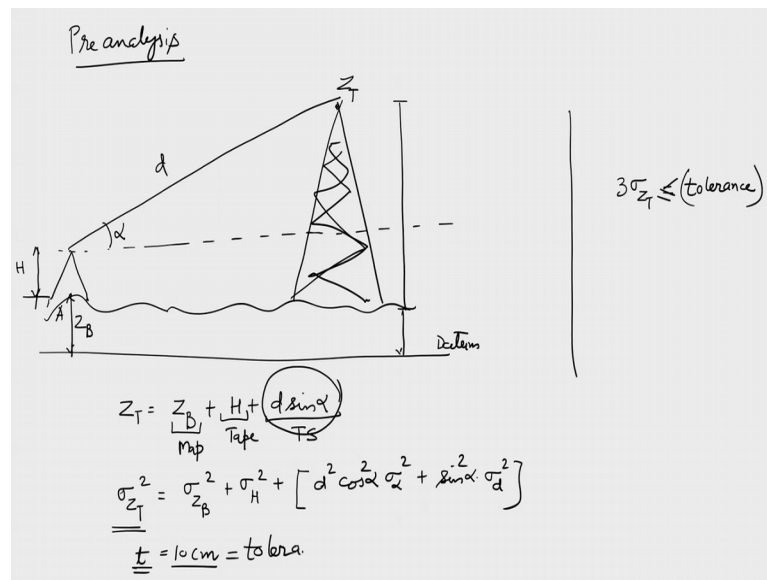 Preanalysis
Z_T
d
α
H
A
Z_B
Datum
3σ_{Z_T} ≤ (tolerance)
Z_T = Z_B + H + d sinα
Map Tape TS
σ_{Z_T}^2 = σ_{Z_B}^2 + σ_H^2 + [d^2 cos^2α σ_α^2 + sin^2α · σ_d^2]
t = 10cm = tolera.